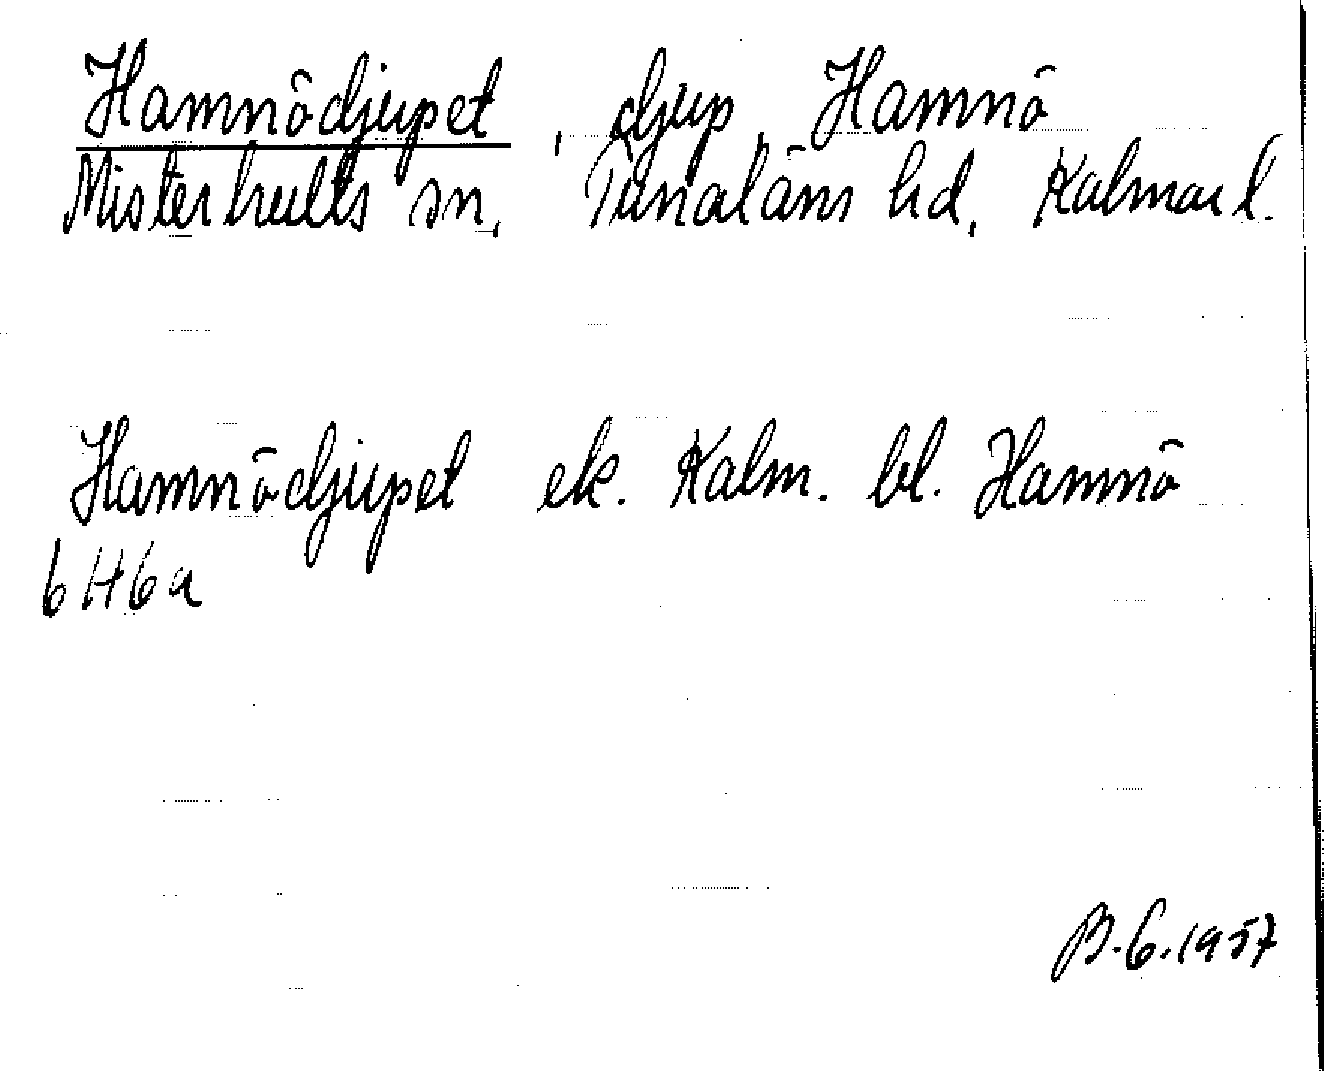 Hamnödjupet, djup, Hamnö
Misterhults sn, Tunaläns hd, Kalmar l.
Hamnödjupet ek. Kalm. bl. Hamnö
6H6a
B.G.1957